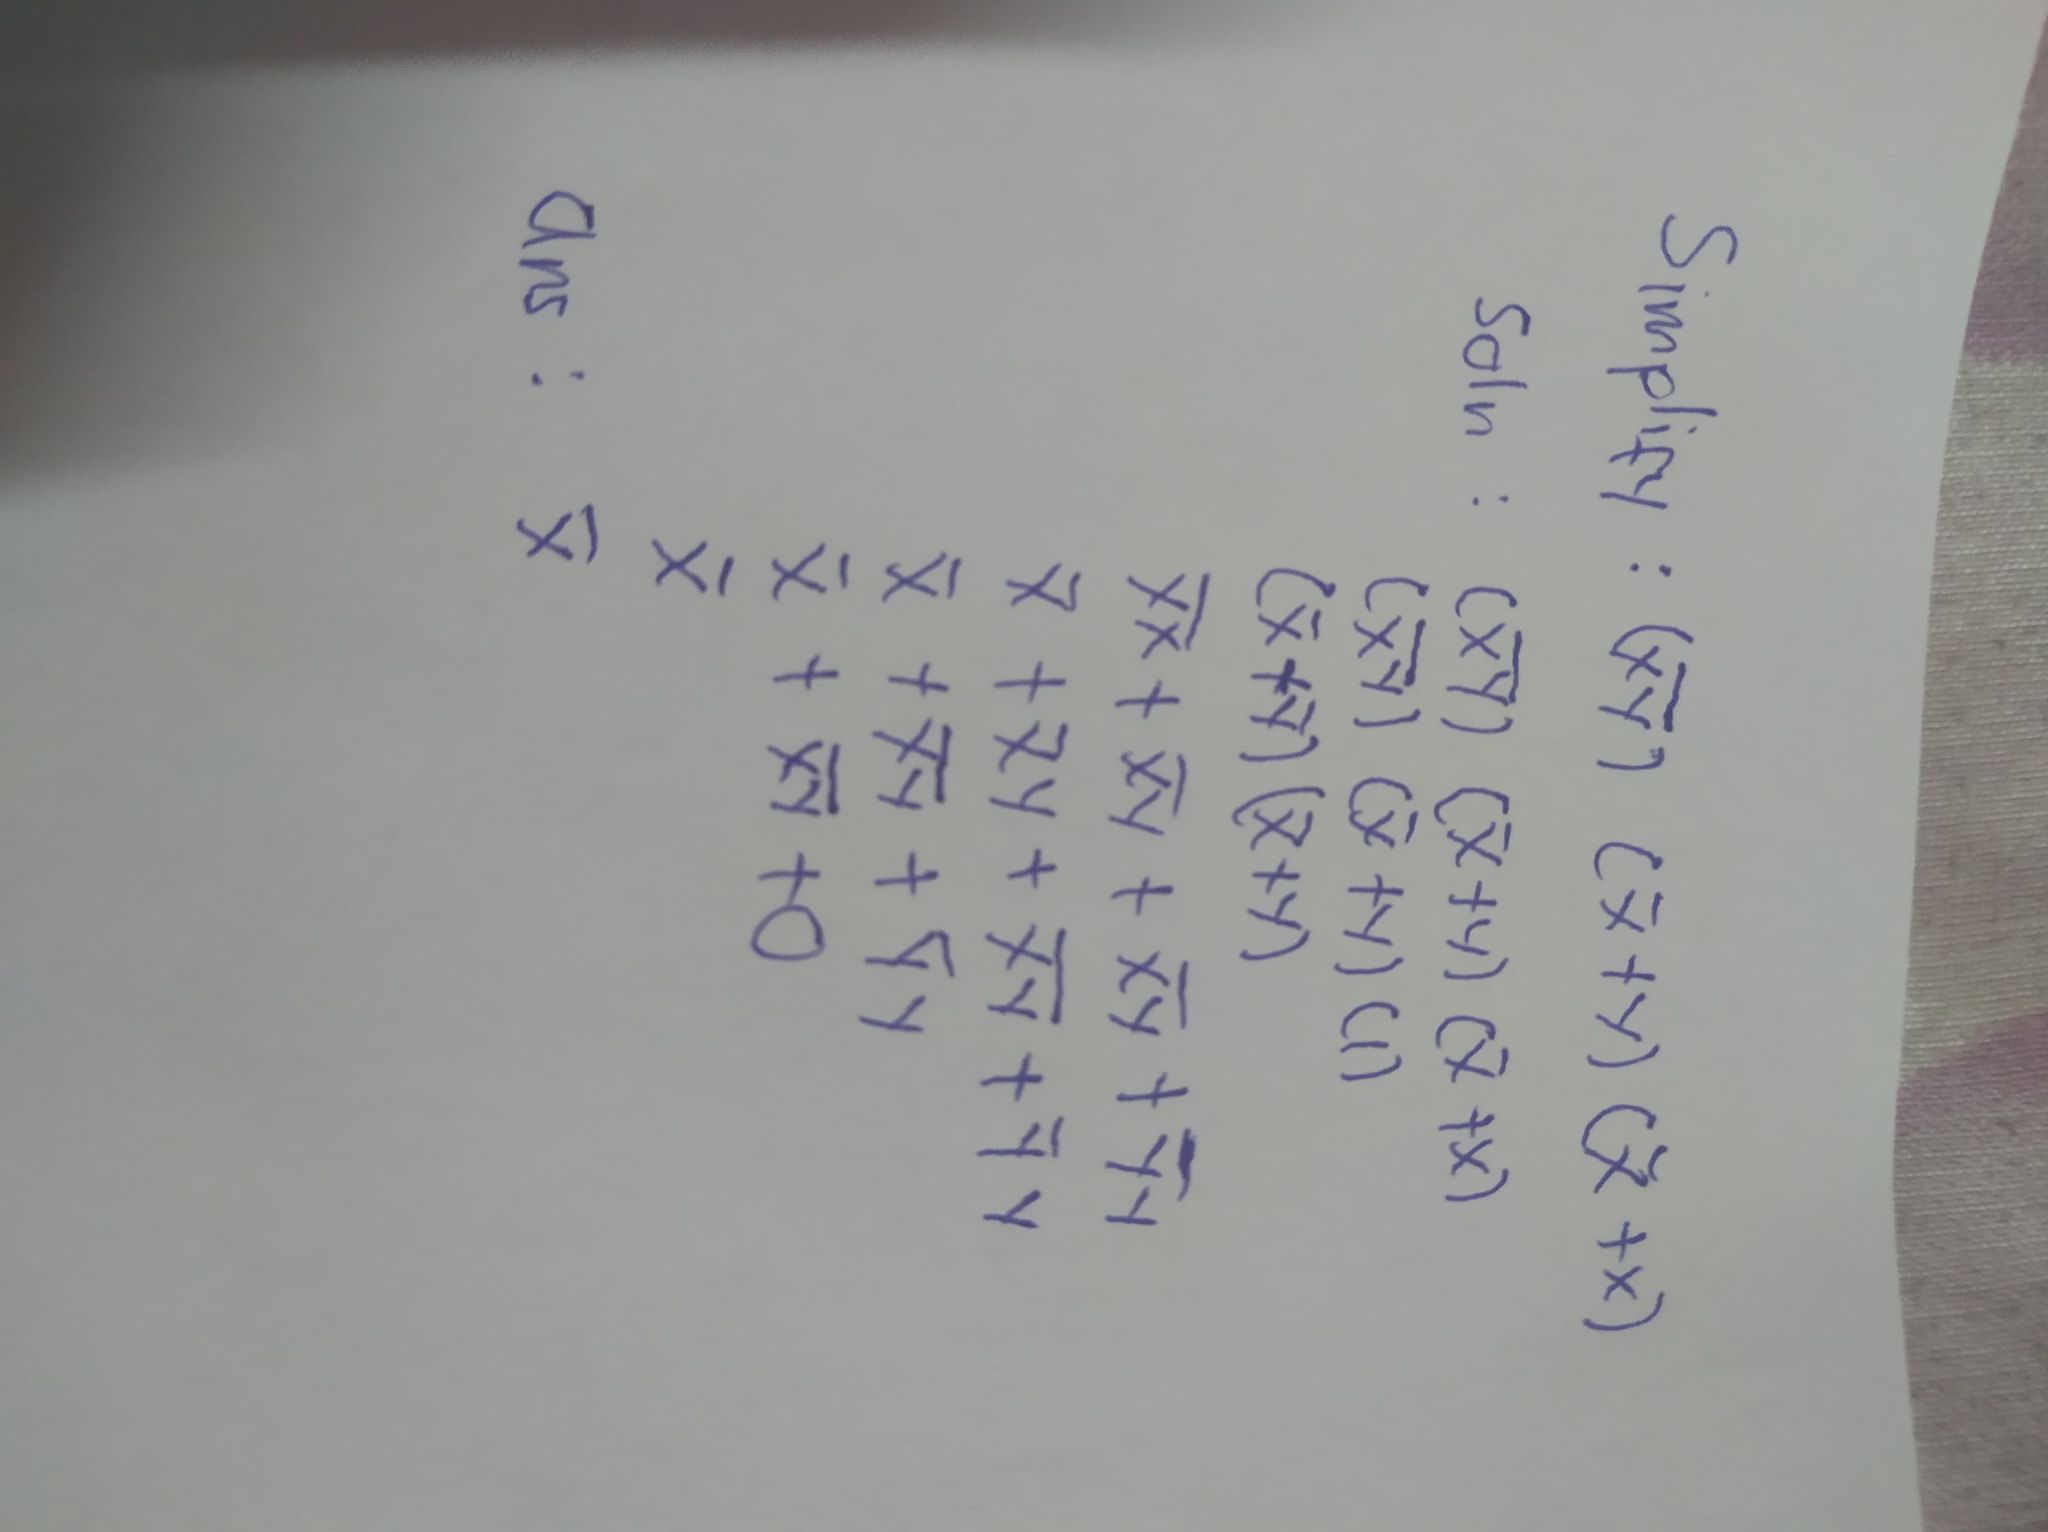 Simplify : (x̅y̅) (x̅+y) (x̅+x)
Soln : (x̅y̅) (x̅+y) (x̅+x)
(x̅y̅) (x̅+y) (1)
(x̅+y̅) (x̅+y)
x̅x̅ + x̅y̅ + x̅y̅ + y̅y
x̅ + x̅y + x̅y̅ + y̅y
x̅ + x̅y̅ + y̅y
x̅ + x̅y̅ +0
x̅
Ans : x̅